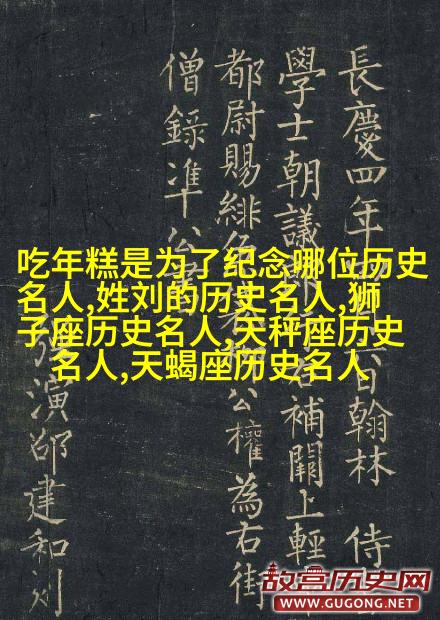 長慶四年六日翰林侍
學士朝議補闕上輕
都尉賜緋公權為右街
僧錄准公
強演邵建和刻
吃年糕是为了纪念哪位历史
名人,姓刘的历史名人,狮
子座历史名人,天秤座历史
名人,天蝎座历史名人
故宫历史网
WWW.GUGONG.NET